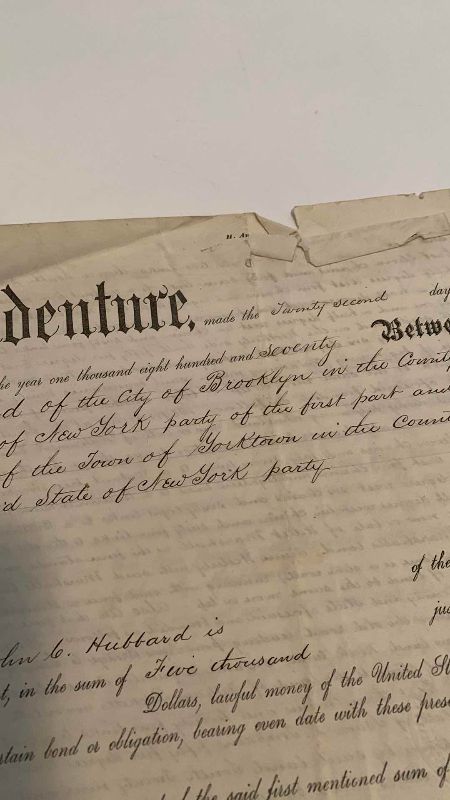 denture, made the Twenty second day
he year one thousand eight hundred and seventy Betwe
d of the City of Brooklyn in the Count
of New York party of the first part and
f the Town of Yorktown in the Coun
d State of New York party
of the
ohn C. Hubbard is
t, in the sum of Five thousand
Dollars, lawful money of the United St
rtain bond or obligation, bearing even date with these prese
the said first mentioned sum of